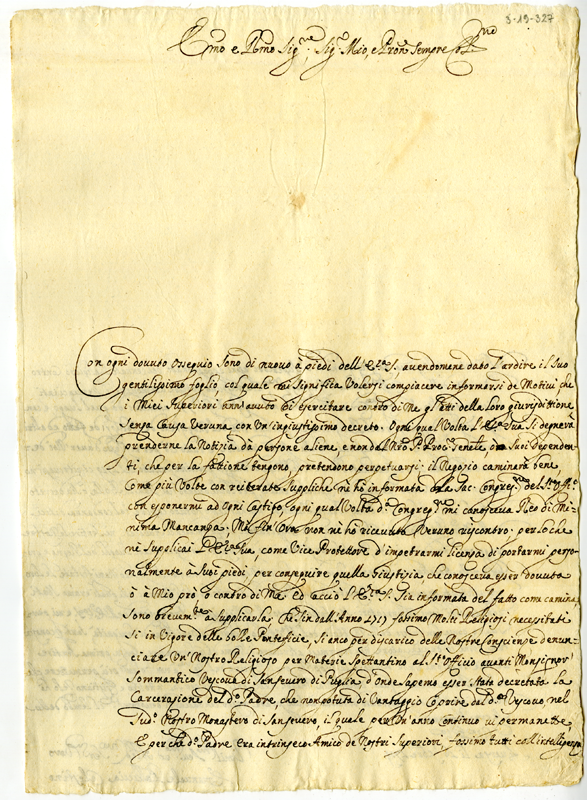 3-19-327
Emo e Rmo Sigre, Sigr Mio, e Pron Sempre Colmo
Con ogni dovuto Ossequio sono di nuovo à piedi dell'Eza S. avendomene dato l'ardire il suo
gentilissimo foglio, col quale mi significa volersi compiacere informarsi de Motivi che
i Miei Superiori ann'avuto di esercitare contro di Me gl'atti della Loro giurisdittione
senza Causa Veruna, con un'ingiustissimo decreto. Ogni qual Volta l'Eza Sua si degnerà
prenderne la Notizia dà persone aliene, e non dal Nro Pre Proc. Genele, ò da Suoi dependen-
ti, che per la fattione tengono, pretendono perpetuarsi: il Negozio caminarà bene
Come più Volte con reiterate Suppliche nè hò informata la Sac: Congregne del St Offo
con esponermi ad Ogni Castigo, ogni qual Volta da Congregne mi conosceva Reo di Mi-
nima Mancanza: Mà fin'Ora non nè hò ricevuto Veruno riscontro: per lo che
nè supplicai l'Eza Sua, come Vice Protettore d'impetrarmi licenza di portarmi perso-
nalmente à Suoi piedi, per conseguire quella Giustizia che conosceva esser dovuta
ò à Mio prò, ò contro di Me. Ed acciò l'Eza S. sia informata del fatto come camina,
sono brevemte à supplicarla, che sin dall'Anno 1717 fossimo Molti Religiosi necessitati
si in Vigore delle bolle Pontificie, si anco per discarico delle Nostre Conscienze denun-
ciare Un Nostro Religioso per Materie Spettantino al St Officio avanti Monsignor
Sommantico Vescovo di Sansevero di Puglia, d'Onde sapemo esser stata decretata la
Carcerazione del do Padre, che non potuta di Vantaggio Coprire dal do Vescovo, nel
sudo Nostro Monastero di Sansevero, il quale per Un'anno Continuo vi permanette
E perche do Padre era intrinseco Amico de Nostri Superiori, fossimo tutti coll'intelligenza